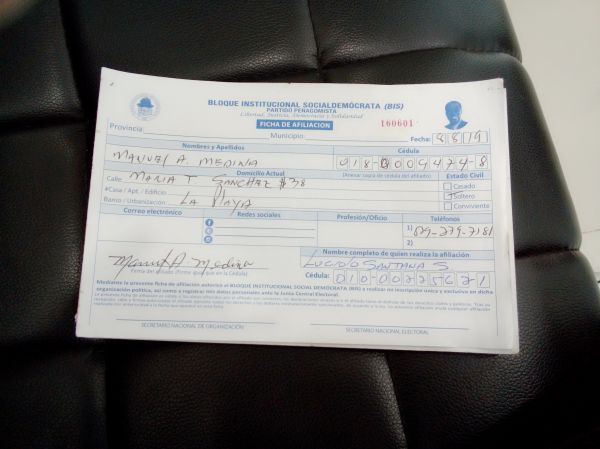 BLOQUE INSTITUCIONAL SOCIALDEMÓCRATA (BIS)
PARTIDO PEÑAGOMISTA
Libertad, Justicia, Democracia y Solidaridad
FICHA DE AFILIACIÓN
160601
Provincia Municipio Fecha: 8 8 19
Nombres y Apellidos Cédula
MANUEL A. MEDINA 018-0009474-8
Domicilio Actual (Anexar copia de cédula del afiliado) Estado Civil
Calle: MARIA T SANCHEZ #38 Casado
#Casa / Apt. / Edificio Soltero
Barrio / Urbanización LA PlAYA Conviviente
Correo electrónico Redes sociales Profesión/Oficio Teléfonos
1) 829-279-7181
2)
Manuel A Medina
Firma del afiliado (Firme igual que en la Cédula)
Nombre completo de quien realiza la afiliación
LUCIDIO SANTANA S
Cédula: 010-0077567-1
Mediante la presente ficha de afiliación autorizo al BLOQUE INSTITUCIONAL SOCIAL DEMÓCRATA (BIS) a realizar mi inscripción única y exclusiva en dicha
organización política, así como a registrar mis datos personales ante la Junta Central Electoral.
SECRETARIO NACIONAL DE ORGANIZACIÓN SECRETARIO NACIONAL ELECTORAL